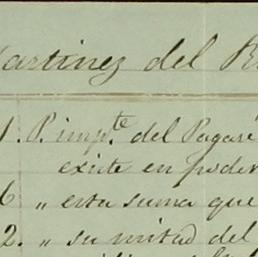 artinez del R
1. P. imp.te del Pagaré
existe en poder
6 „ esta suma que
2. „ su mitad del